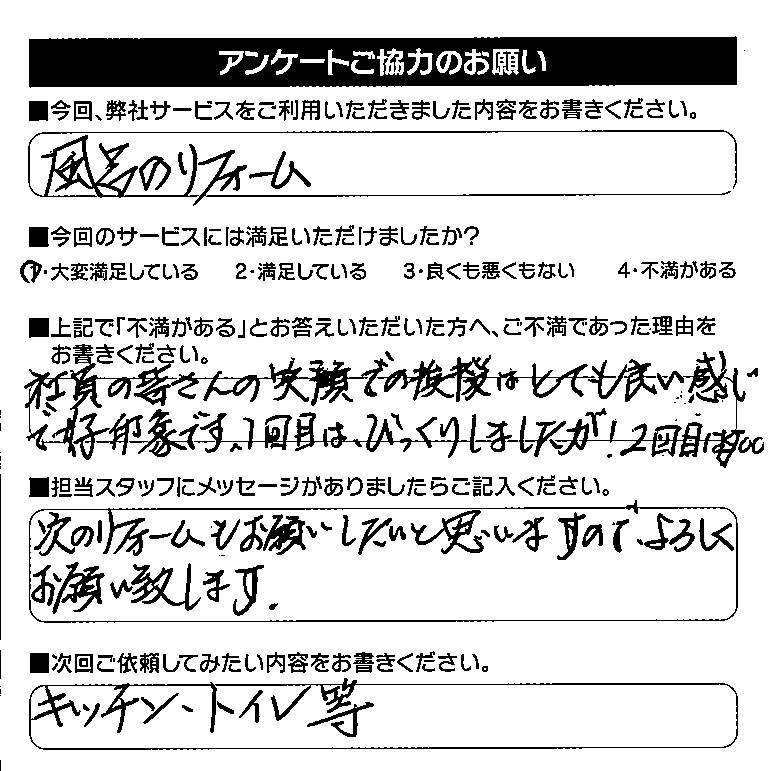 アンケートご協力のお願い
■今回、弊社サービスをご利用いただきました内容をお書きください。
風呂のリフォーム
■今回のサービスには満足いただけましたか?
1・大変満足している 2・満足している 3・良くも悪くもない 4・不満がある
■上記で「不満がある」とお答えいただいた方へ、ご不満であった理由を
お書きください。
社員の皆さんの笑顔での挨拶はとても良い感じ
で好印象です。1回目は、びっくりしましたが!2回目は
■担当スタッフにメッセージがありましたらご記入ください。
次のリフォームもお願いしたいと思いますので、よろしく
お願い致します。
■次回ご依頼してみたい内容をお書きください。
キッチン、トイレ等